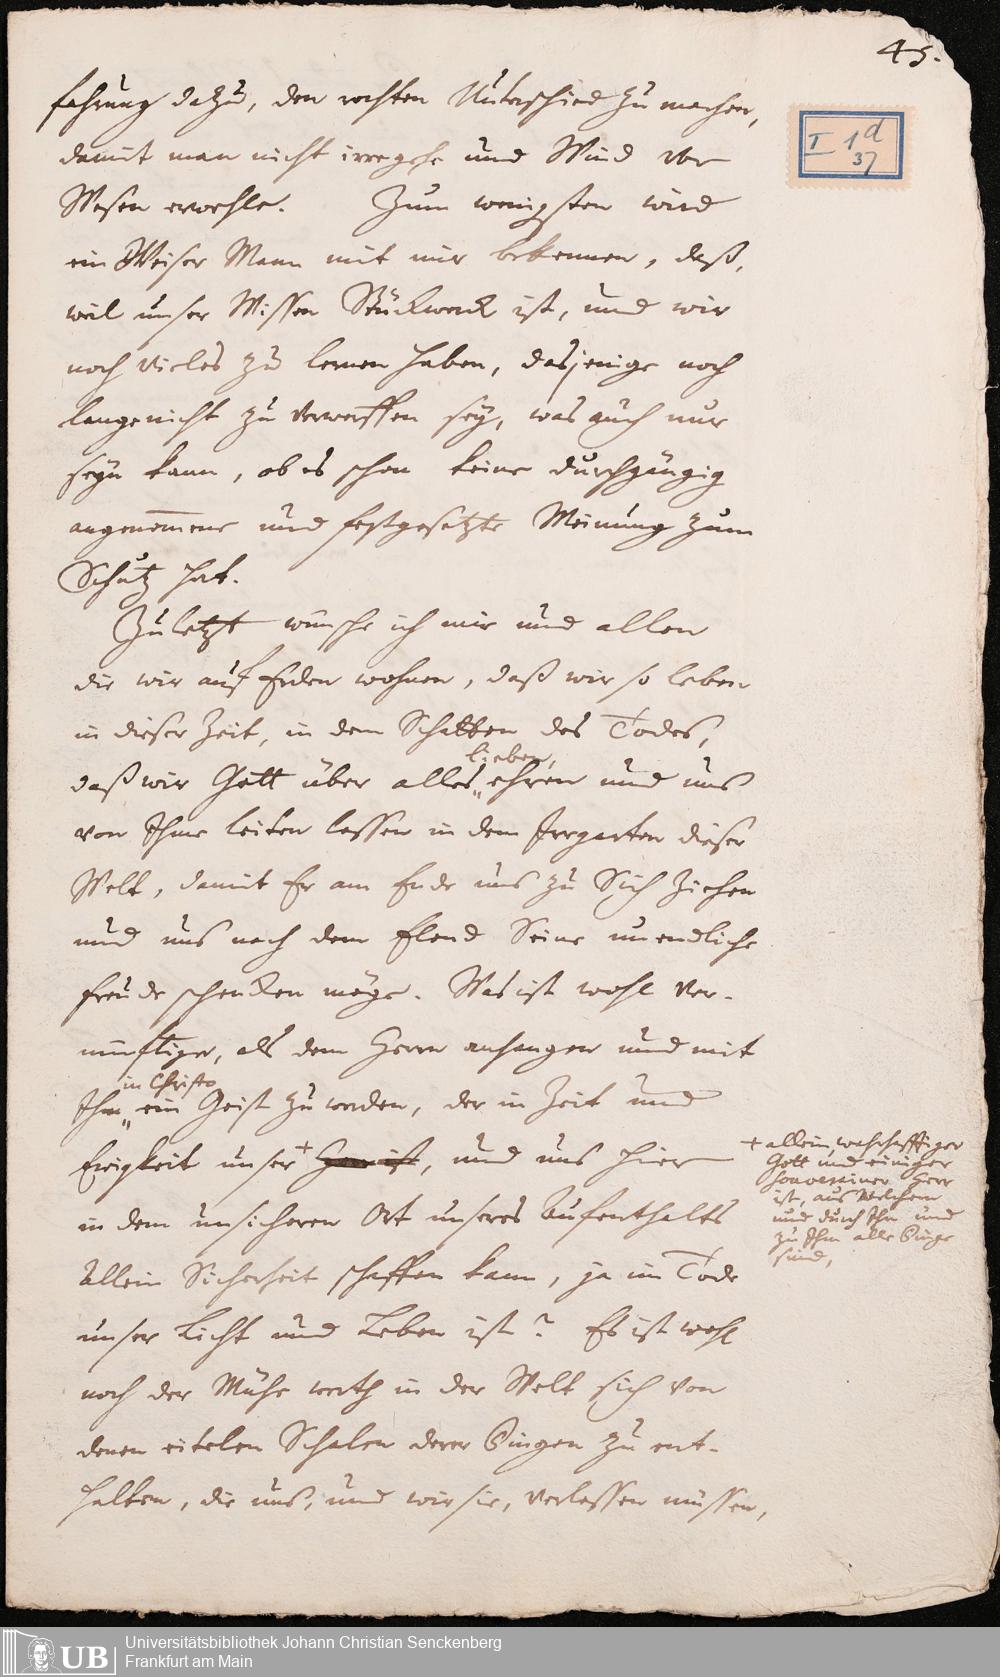 45.
I 1d
37
fahrung dazu, den rechten Unterschied zu machen,
damit man nicht irre gehe und Wind vor
Wesen erwehle. Zum wenigsten wird
ein Weiser Mann mit mir bekennen, daß,
weil unser Wissen Stückwerck ist, und wir
noch vieles zu lernen haben, dasjenige noch
lange nicht zu verwerffen sey, was auch nur
seyn kann, ob es schon keine durchgängig
angenom̅ene und festgesetzte Meinung zum
Schutz hat.
Zuletzt wünsche ich mir und allen
die wir auf Erden wohnen, daß wir so leben
in dieser Zeit, in dem Schatten des Todes,
lieben,
daß wir Gott über alles„ ehren und uns
von Ihme leiten lassen in dem Irrgarten dieser
Welt, damit Er am Ende uns zu Sich ziehen
und uns nach dem Elend Seine unendliche
Freude schencken möge. Was ist wohl ver-
nünftiger, als dem Herrn anhangen und mit
in Christo
Ihm„ ein Geist zu werden, der in Zeit und
Ewigkeit unser + Herr ist, und uns hier
+ allein wahrhafftiger
Gott und einiger
souverainer Herr
ist, aus Welchem
und durch Ihn und
zu Ihm alle Dinge
sind,
in dem unsicheren Ort unseres Aufenthalts
Allein Sicherheit schaffen kann, ja im Tode
unser Licht und Leben ist? Es ist wohl
noch der Mühe werth in der Welt sich von
denen eitelen Schalen derer Dingen zu ent-
halten, die uns, und wir sie, verlassen müssen,
UB Universitätsbibliothek Johann Christian Senckenberg
Frankfurt am Main